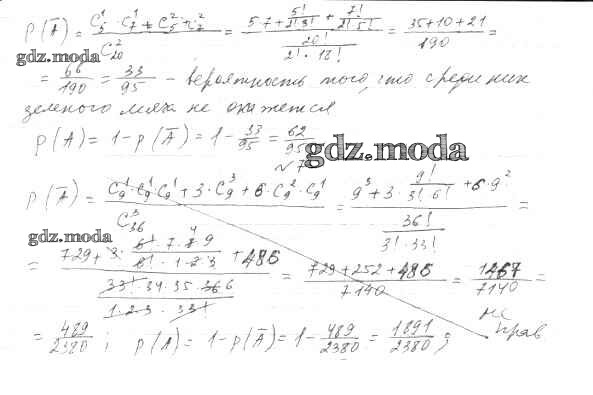 P(Ā) = (C₅¹ · C₇¹ + C₅² + C₇²) / C₂₀² = (5·7 + 5!/(2!·3!) + 7!/(2!·5!)) / (20!/(2!·18!)) = (35+10+21)/190 =
gdz.moda
= 66/190 = 33/95 – вероятность того, что среди них
зеленого мяча не окажется
P(A) = 1 - P(Ā) = 1 - 33/95 = 62/95
√7
gdz.moda
P(Ā) = (C₉¹ · C₉¹ C₉¹ + 3·C₉³ + 6·C₉² · C₉¹) / C₃₆³ = (9³ + 3 · 9!/(3!·6!) + 6·9²) / (36!/(3!·33!)) =
gdz.moda
= (729 + 3 · (6!·7·8·9)/(6!·1·2·3) + 486) / ((33!·34·35·36)/(1·2·3·33!)) = (729+252+486)/7140 = 1467/7140 =
= 489/2380 ; P(A) = 1 - P(Ā) = 1 - 489/2380 = 1891/2380 ;
не
прав